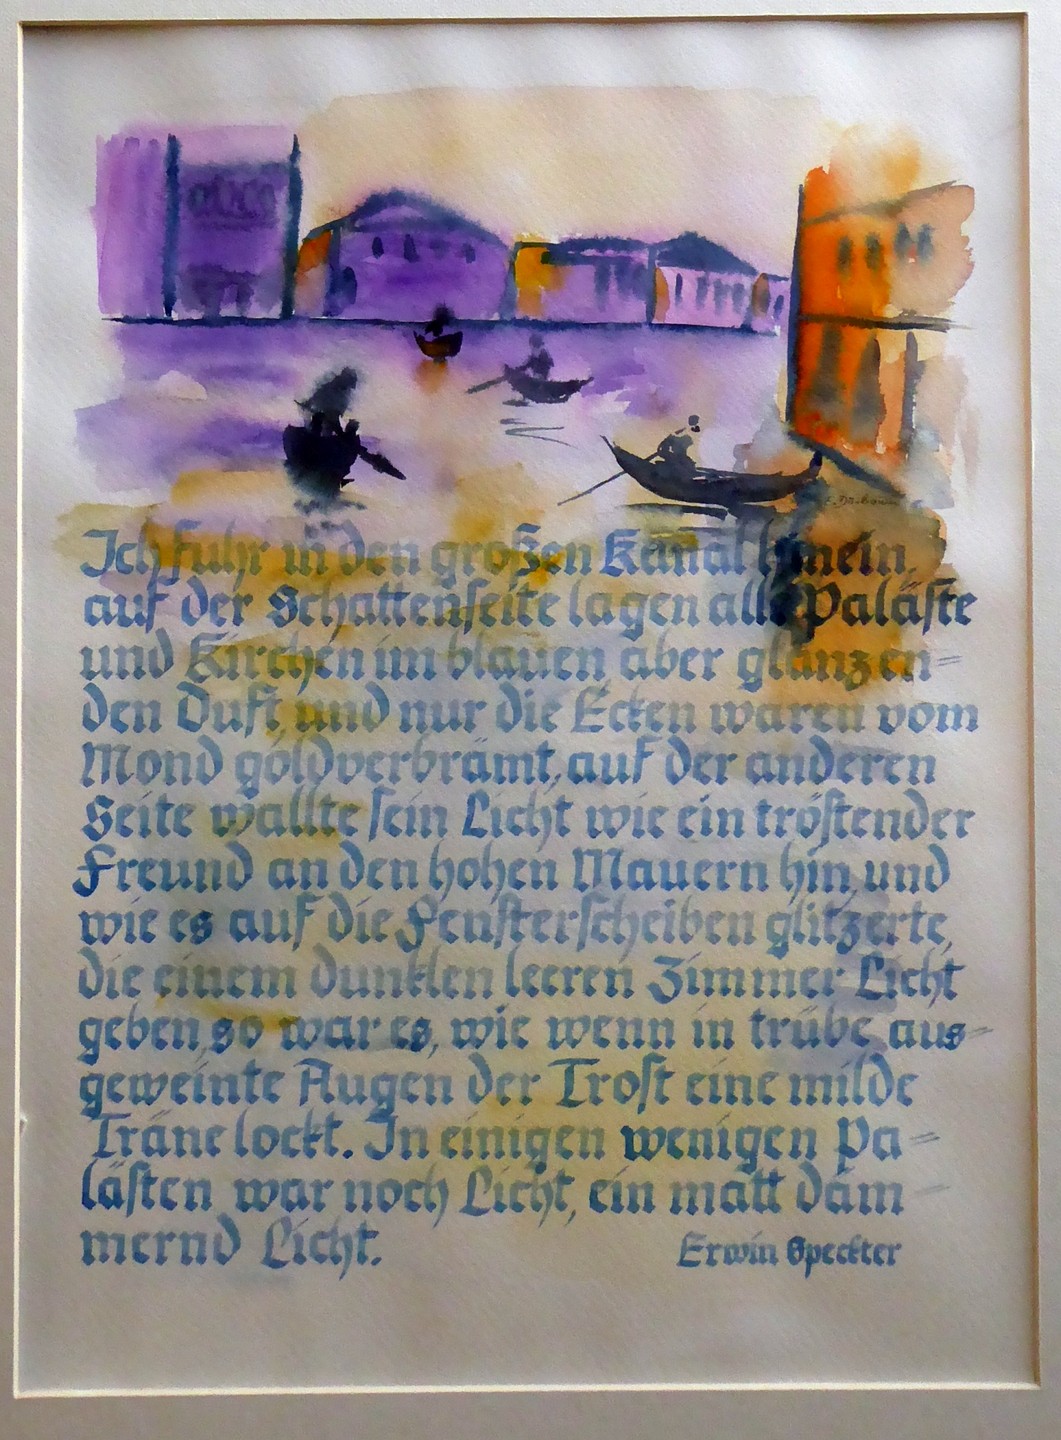 Ich fuhr in den großen Kanal hinein,
auf der Schattenseite lagen alle Paläste
und Kirchen im blauen aber glänzen=
den Duft, und nur die Ecken waren vom
Mond goldverbrämt, auf der anderen
Seite wallte sein Licht wie ein tröstender
Freund an den hohen Mauern hin, und
wie es auf die Fensterscheiben glitzerte,
die einem dunklen leeren Zimmer Licht
geben, so war es, wie wenn in trübe, aus=
geweinte Augen der Trost eine milde
Träne lockt. In einigen wenigen Pa=
lästen war noch Licht, ein matt däm=
mernd Licht.
Erwin Speckter